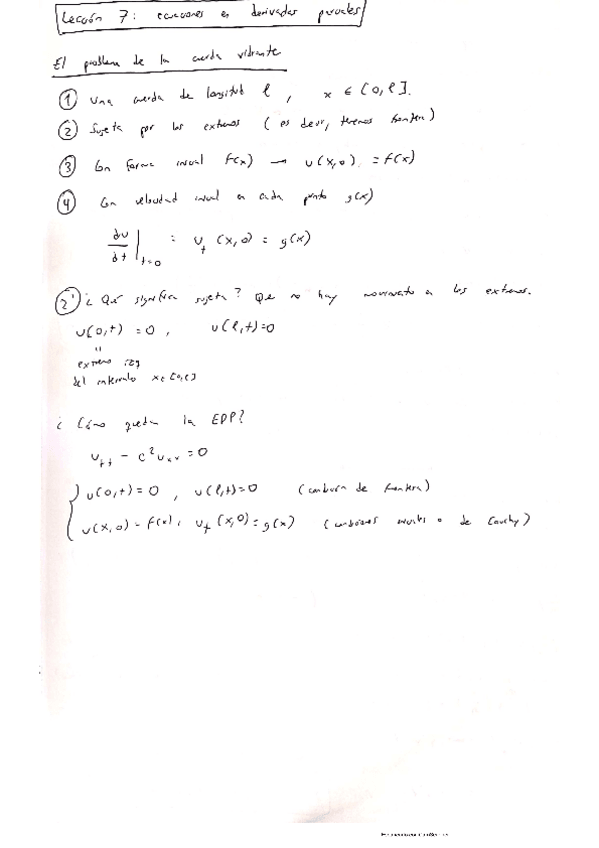 Lección 7: ecuaciones en derivadas parciales
El problema de la cuerda vibrante
① Una cuerda de longitud ℓ, x ∈ [0, ℓ].
② Sujeta por los extremos (es decir, tenemos frontera)
③ Con forma inicial f(x) → u(x,0) = f(x)
④ Con velocidad inicial en cada punto g(x)
du/dt |t=0 = u_t (x,0) = g(x)
②' ¿Qué significa sujeta? Que no hay movimiento en los extremos.
u(0,t) = 0, u(ℓ,t)=0
"
extremo izq
del intervalo x∈[0,ℓ]
¿Cómo queda la EDP?
u_tt - c²u_xx = 0
u(0,t) = 0, u(ℓ,t)=0 (condición de frontera)
u(x,0) = f(x), u_t (x,0) = g(x) (condiciones iniciales o de Cauchy)